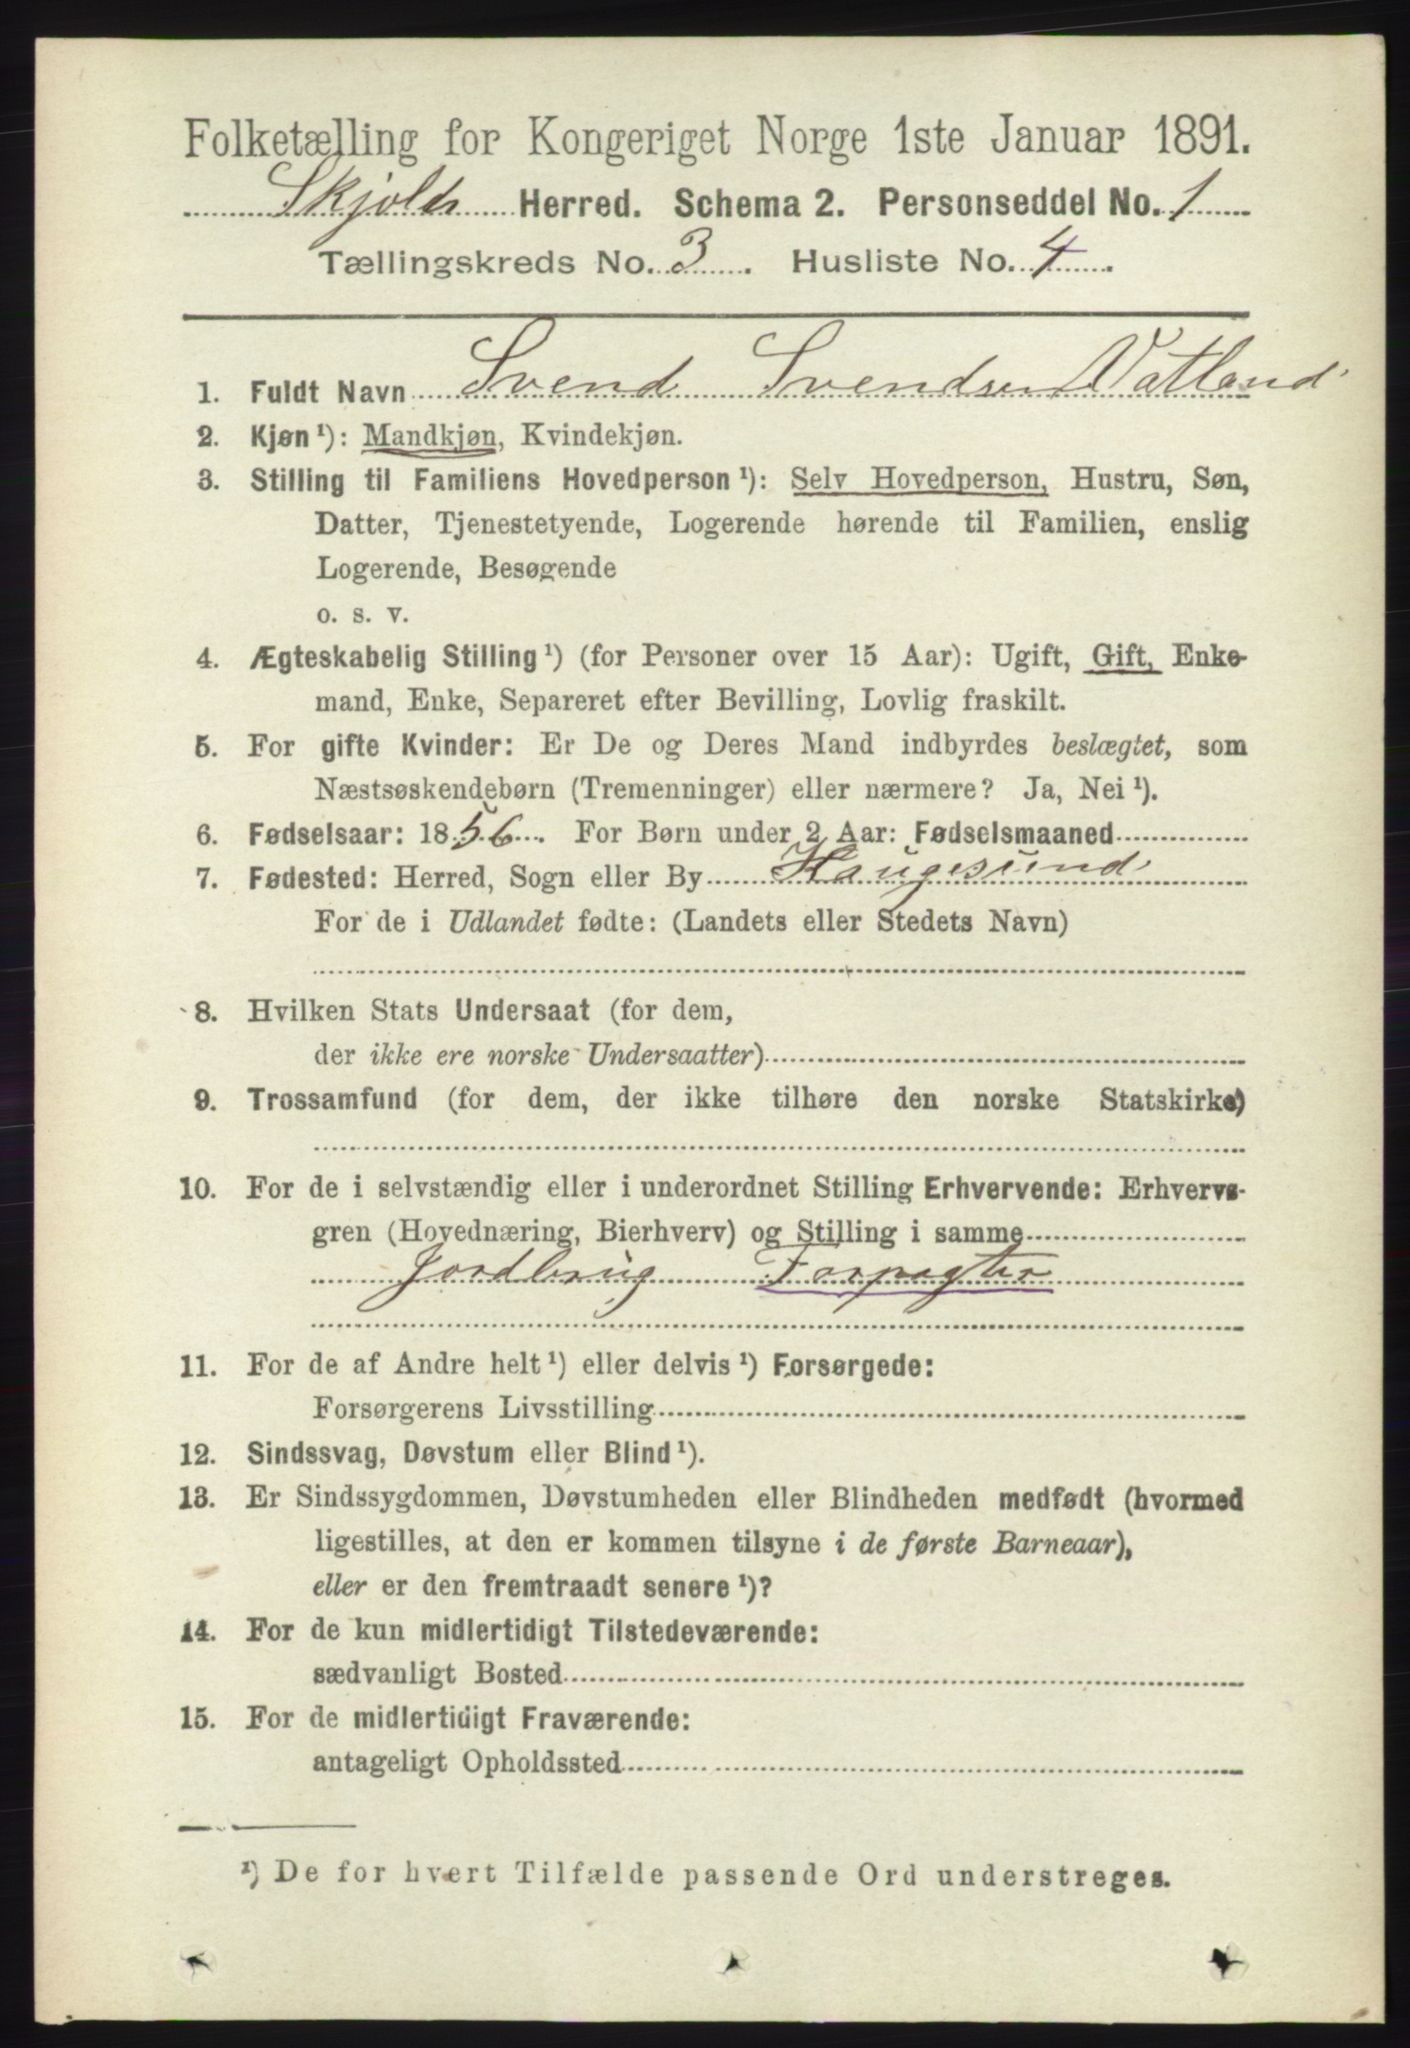 Folketælling for Kongeriget Norge 1ste Januar 1891.
Skjold Herred. Schema 2. Personseddel No. 1
Tællingskreds No. 3. Husliste No. 4.
1. Fuldt Navn Svend Svendsen Vatland
2. Kjøn ¹): Mandkjøn, Kvindekjøn.
3. Stilling til Familiens Hovedperson ¹): Selv Hovedperson, Hustru, Søn,
Datter, Tjenestetyende, Logerende hørende til Familien, enslig
Logerende, Besøgende
o. s. v.
4. Ægteskabelig Stilling ¹) (for Personer over 15 Aar): Ugift, Gift, Enke-
mand, Enke, Separeret efter Bevilling, Lovlig fraskilt.
5. For gifte Kvinder: Er De og Deres Mand indbyrdes beslægtet, som
Næstsøskendebørn (Tremenninger) eller nærmere? Ja, Nei ¹).
6. Fødselsaar: 1856. For Børn under 2 Aar: Fødselsmaaned
7. Fødested: Herred, Sogn eller By Haugesund
For de i Udlandet fødte: (Landets eller Stedets Navn)
8. Hvilken Stats Undersaat (for dem,
der ikke ere norske Undersaatter)
9. Trossamfund (for dem, der ikke tilhøre den norske Statskirke)
10. For de i selvstændig eller i underordnet Stilling Erhvervende: Erhvervs-
gren (Hovednæring, Bierhverv) og Stilling i samme
Jordbrug Forpagter
11. For de af Andre helt ¹) eller delvis ¹) Forsørgede:
Forsørgerens Livsstilling
12. Sindssvag, Døvstum eller Blind ¹).
13. Er Sindssygdommen, Døvstumheden eller Blindheden medfødt (hvormed
ligestilles, at den er kommen tilsyne i de første Barneaar),
eller er den fremtraadt senere ¹)?
14. For de kun midlertidigt Tilstedeværende:
sædvanligt Bosted
15. For de midlertidigt Fraværende:
antageligt Opholdssted
¹) De for hvert Tilfælde passende Ord understreges.